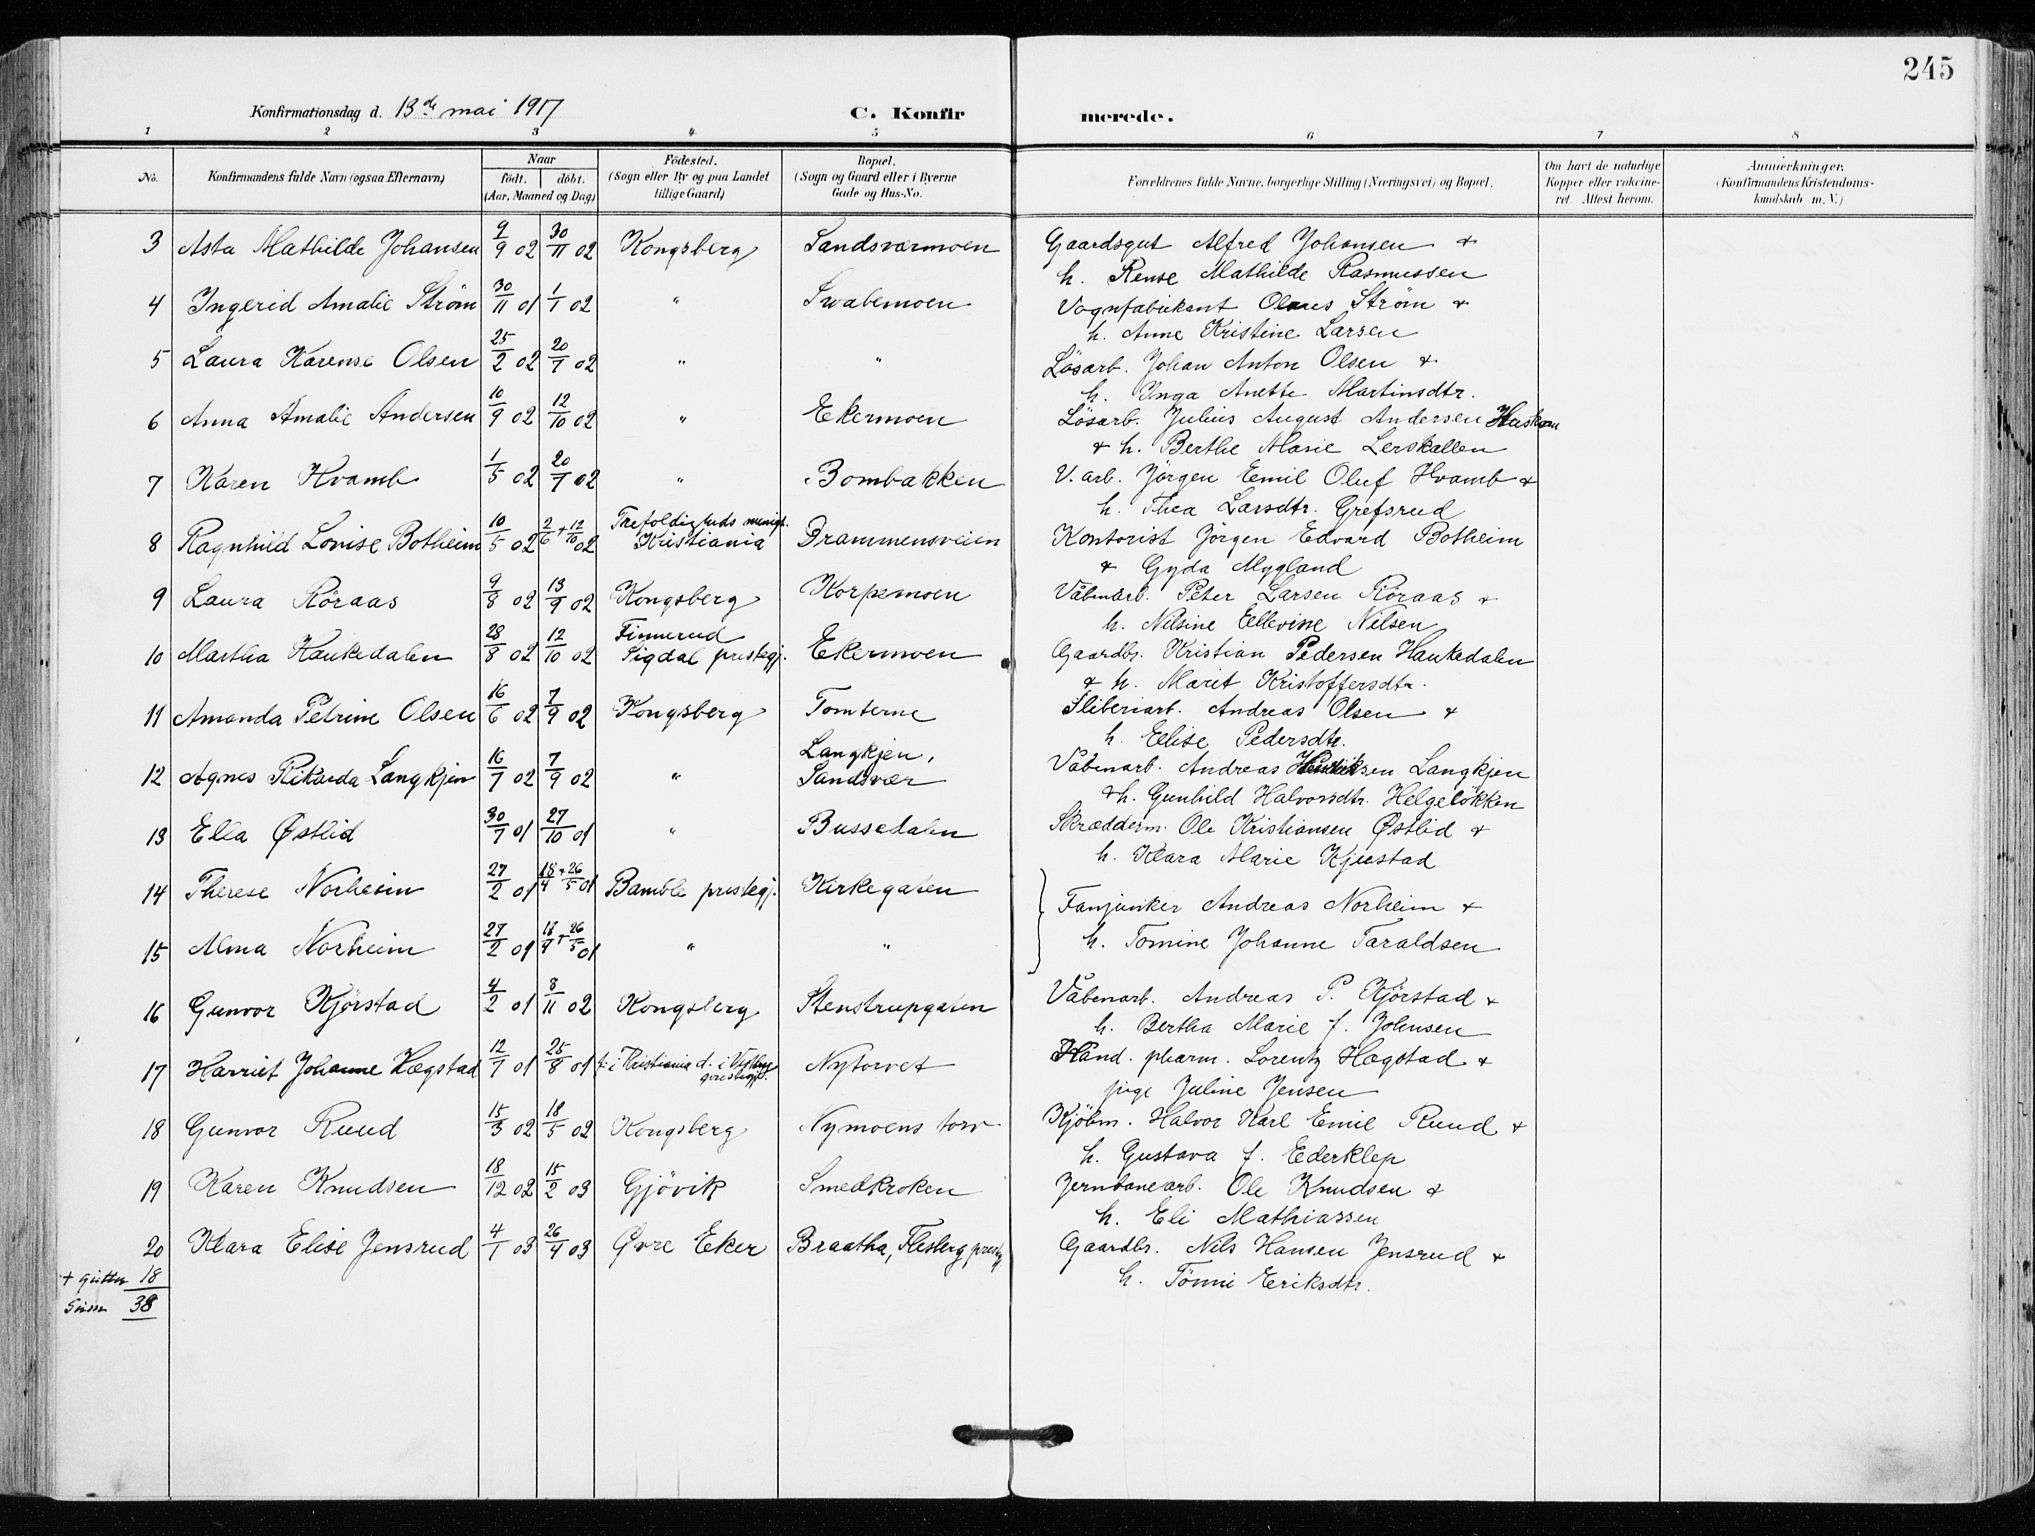 245
Konfirmationsdag d. 13de mai 1917 C. Konfirmerede.
1 2 3 4 5 6 7 8
No. Konfirmandens fulde Navn (ogsaa Efternavn) Naar født. døbt. (Aar, Maaned og Dag) Fødested. (Sogn eller By og paa Landet tillige Gaard) Bopæl. (Sogn og Gaard eller i Byerne Gade og Hus-No. Forældrenes fulde Navne, borgerlige Stilling (Næringsvei) og Bopæl. Om havt de naturlige Kopper eller vakcineret Attest herom. Anmærkninger. (Konfirmandens Kristendomskundskab m. V.)
3 Asta Mathilde Johansen 9/9 02 30/11 02 Kongsberg Sandsværmoen Gaardsgut Alfred Johansen +
h. Rense Mathilde Rasmussen
4 Ingerid Amalie Strøm 30/11 01 1/1 02 " Svabemoen Vognfabrikant Olaus Strøm +
h. Anne Kristine Larsen
5 Laura Karense Olsen 25/2 02 20/7 02 " " Løsarb. Johan Anton Olsen +
h. Inga Anette Martinsdtr.
6 Anna Amalie Andersen 10/9 02 12/10 02 " Ekermoen Løsarb. Julius August Andersen
+ h. Berthe Marie Lerskallen
7 Karen Hvamb 1/5 02 20/7 02 " Bombakken V. arb. Jørgen Emil Oluf Hvamb +
h. Thea Larsdtr. Grefsrud
8 Ragnhild Lovise Botheim 10/5 02 2/6 + 12/10 02 Trefoldigheds menigh. Kristiania Drammensveien Kontorist Jørgen Edvard Botheim
+ Gyda Mygland
9 Laura Røraas 9/8 02 13/9 02 Kongsberg Korpemoen Våbenarb. Peter Larsen Røraas +
h. Nilsine Ellevine Nilsen
10 Martha Haukedalen 28/8 02 12/10 02 Finnerud Sigdal prestegj. Ekermoen Gaardbr. Kristian Pedersen Haukedalen
+ h. Marit Kristoffersdtr.
11 Amanda Petrine Olsen 16/6 02 7/9 02 Kongsberg Tomterne Sliberiarb. Andreas Olsen +
h. Elise Pedersdtr.
12 Agnes Rikarda Langkjen 16/7 02 7/9 02 " Langkjen, Sandsvær Våbenarb. Andreas Henriksen Langkjen
+ h. Gunhild Halvorsdtr. Helgeløkken
13 Ella Østlid 30/7 01 27/10 01 " Bussedalen Skræddrm. Ole Kristiansen Østlid +
h. Klara Marie Kjustad
14 Therese Norheim 27/2 01 18/4 + 26/5 01 Bamble prestegj. Kirkegaten Fanjunker Andreas Norheim +
15 Alma Norheim 27/2 01 18/4 + 26/5 01 " " h. Tomine Johanne Taraldsen
16 Gunvor Kjørstad 4/2 01 8/11 02 Kongsberg Stenstrupgaten Våbenarb. Andreas P. Kjørstad +
h. Bertha Marie f. Johnsen
17 Harriet Johanne Hægstad 12/7 01 25/8 01 f. i Kristiania d. i Vestby prestegj. Nytorvet Kand. pharm. Lorentz Hægstad +
pige Juline Jensen
18 Gunvor Ruud 15/3 02 18/5 02 Kongsberg Nymoens torv Kjøbm. Halvor Karl Emil Ruud +
h. Gustava f. Ederklep
19 Karen Knudsen 18/12 02 15/2 03 Gjøvik Smedkroken Jernbanearb. Ole Knudsen +
h. Eli Mathiassen
20 Klara Elise Jensrud 4/1 03 26/4 03 Øvre Eker Braatha, Flesberg prestegj. Gaardbr. Nils Hansen Jensrud +
h. Tønne Eriksdtr.
+ gutter 18
Sum 38